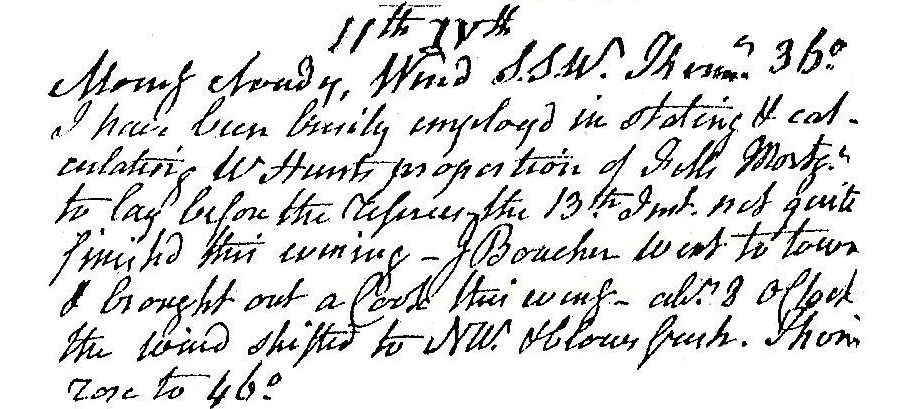 11th IVth
Morng cloudy, Wind S.S.W. Therm. 36°
I have been busily employd in stating & cal-
culating W Hunts proportion of Fells Mortg.
to lay before the referees the 13th Inst. not quite
finishd this evening - J Boucher went to town
& brought out a Cook this eveng - abt. 8 oClock
the wind shifted to NW. & blows fresh. Therm
rose to 46°